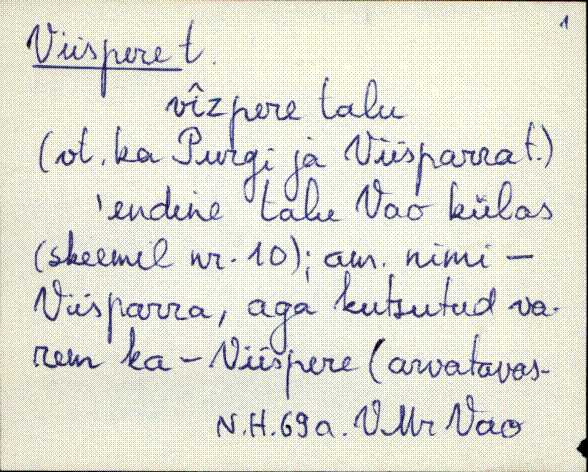 1
Viispere t.
vîzpere talu
(vt. ka Purgi ja Viisparra t.)
'endine talu Vao külas
(skeemil nr. 10); am. nimi –
Viisparra, aga kutsutud va-
rem ka – Viispere (arvatavas-
N.H.69a. VMr Vao